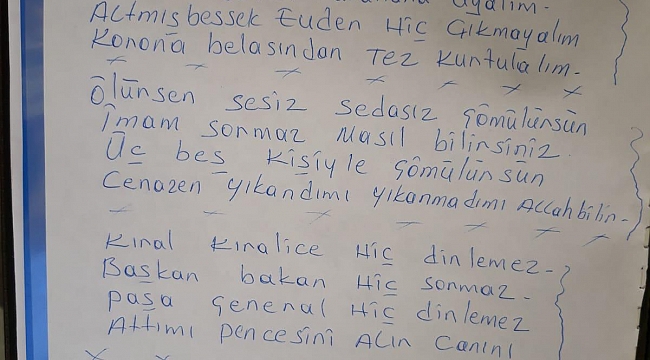 uyalım-
Altmışbessek Euden Hiç Gıkmayalım
Korona belasından Tez Kurtulalım-
Ölünsen sesiz sedasız gömülürsün
İmam sormaz Nasıl bilirsiniz.
Üç beş kişiyle gömülürsün
Cenazen yıkandımı yıkanmadımı Allahbilir-
Kıral Kıralice Hiç dinlemez-
Başkan bakan Hiç sormaz-
paşa general Hiç dinlemez
Attımı pencesini Alır Canını